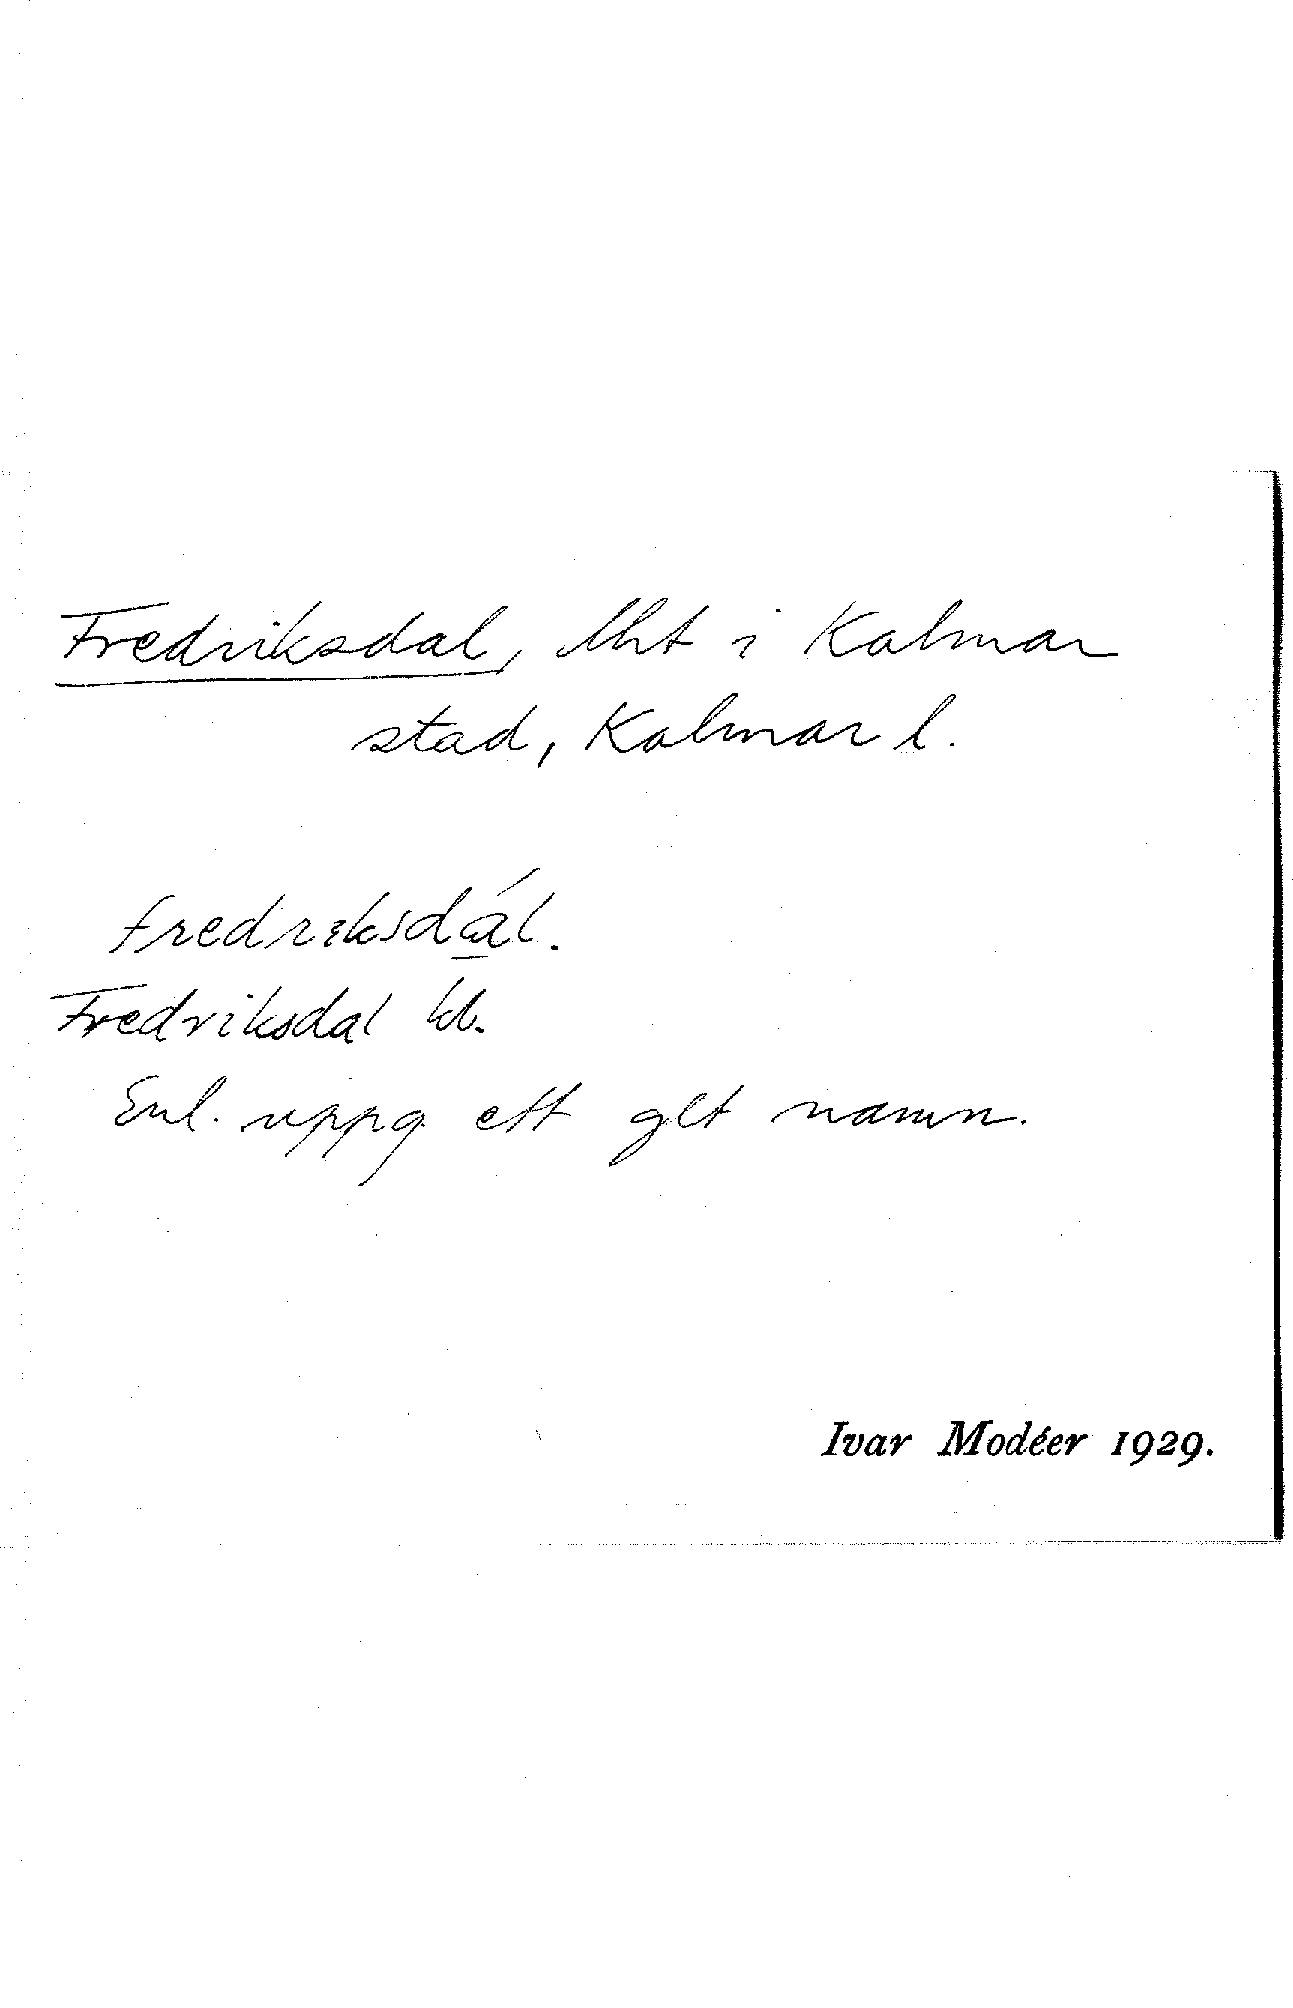 Fredriksdal, lht i Kalmar
stad, Kalmar l.
fredriksdál.
Fredriksdal kb.
Enl. uppg. ett glt namn.
Ivar Modéer 1929.